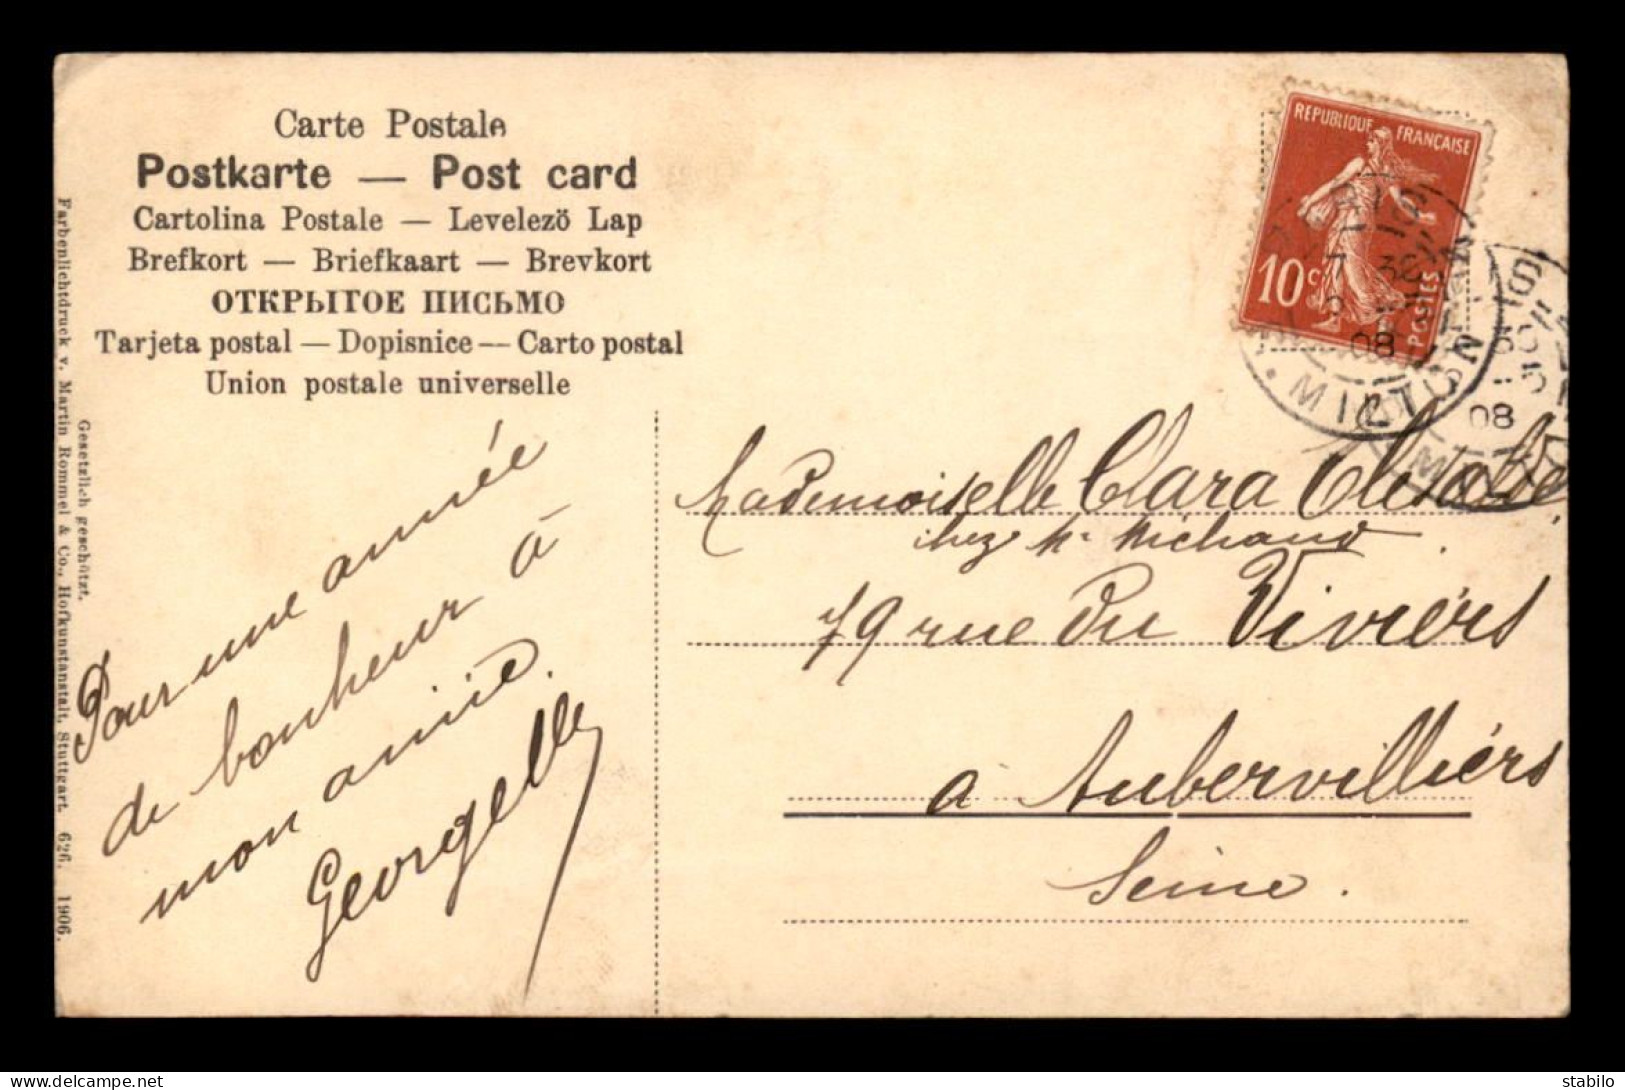 Carte Postale
Postkarte — Post card
Cartolina Postale — Levelező Lap
Brefkort — Briefkaart — Brevkort
ОТКРЫТОЕ ПИСЬМО
Tarjeta postal — Dopisnice — Carto postal
Union postale universelle
Farbenlichtdruck v. Martin Rommel & Co., Hofkunstanstalt, Stuttgart. 626. 1906.
Gesetzlich geschützt.
Pour une année
de bonheur à
mon amie.
Georgelle
REPUBLIQUE FRANÇAISE
10c POSTES
08
MILTON
08
Mademoiselle Clara
chez Mr Michaud.
79 rue du Viviérs
à Aubervilliérs
Seine.
stabilo